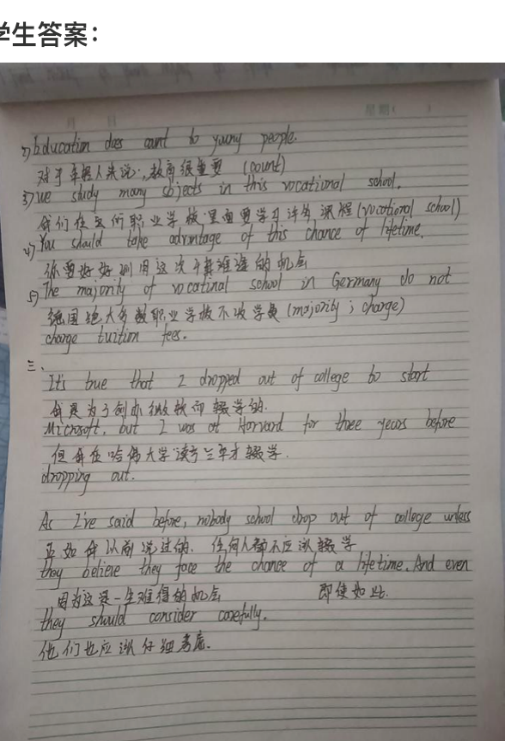 学生答案：
星期（ ）
2) Education does count to young people.
对于年轻人来说，教育很重要 (count)
3) we study many sbjects in this vocational school.
我们在这所职业学校里面要学习许多课程 (vocational school)
4) You should take advantage of this chance of lifetime.
你要好好利用这次千载难逢的机会
5) The majority of vocatinal school in Germany do not
德国绝大多数职业学校不收学费 (majority ; charge)
charge tuition fees.
三.
It's true that I dropped out of college to start
我是为了创办微软而辍学的.
Microsoft, but I was at Harvard for three years before
但我在哈佛大学读了三年才辍学.
dropping out.
As I've said before, nobody school drop out of college unless
正如我以前说过的. 任何人都不应该辍学
they believe they face the chance of a lifetime. And even
因为这是一生难得的机会 即使如此.
they should consider carefully.
他们也应该仔细考虑.